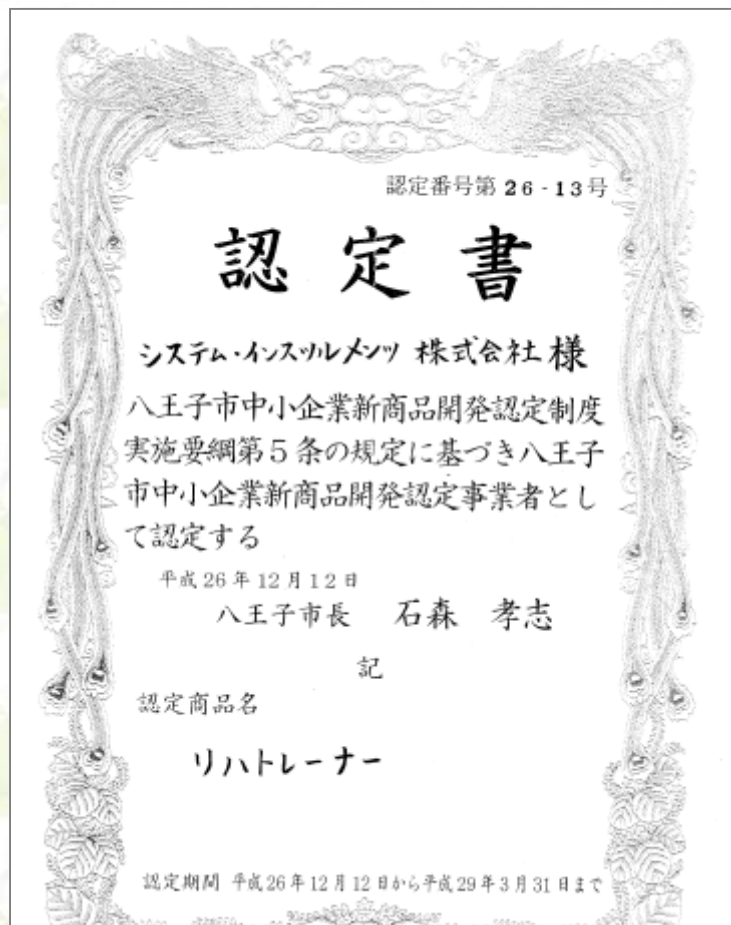 認定番号第26-13号
認定書
システム・インスツルメンツ 株式会社 様
八王子市中小企業新商品開発認定制度
実施要綱第5条の規定に基づき八王子
市中小企業新商品開発認定事業者とし
て認定する
平成26年12月12日
八王子市長 石森 孝志
記
認定商品名
リハトレーナー
認定期間 平成26年12月12日から平成29年3月31日まで